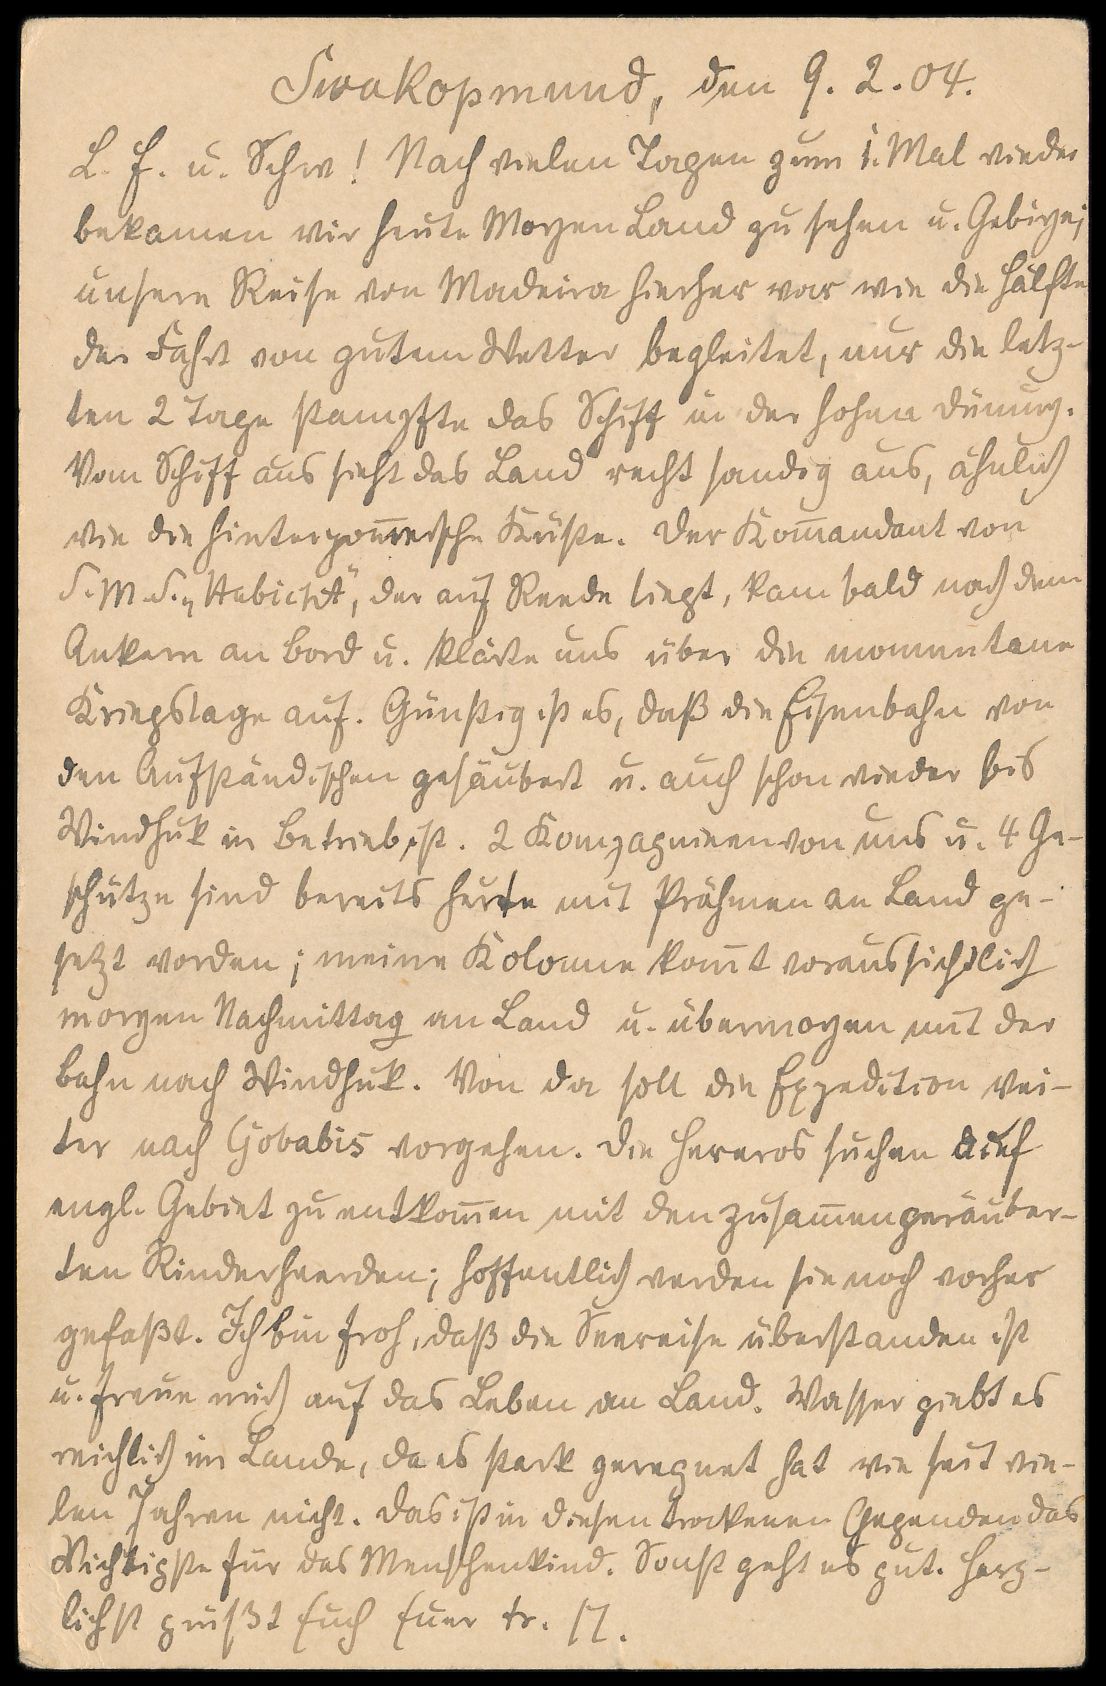 Swakopmund, den 9. 2. 04.
L. E. u. Schw! Nach vielen Tagen zum 1. Mal wieder
bekamen wir heute Morgen Land zu sehen u. Gebirge;
unsere Reise von Madeira hierher war wie die Hälfte
der Fahrt von gutem Wetter begleitet, nur die letz-
ten 2 Tage stampfte das Schiff in der hohen Dünung.
Vom Schiff aus sieht das Land recht sandig aus, ähnlich
wie die hinterpom̅ersche Küste. Der Kom̅andant von
S.M.S. „Habicht“, der auf Reede liegt, kam bald nach dem
Ankern an Bord u. klärte uns über die momentane
Kriegslage auf. Günstig ist es, daß die Eisenbahn von
den Aufständischen gesäubert u. auch schon wieder bis
Windhuk in Betrieb ist. 2 Kompagnieen von uns u. 4 Ge-
schütze sind bereits heute mit Prähmen an Land ge-
setzt worden; meine Kolonne kom̅t voraussichtlich
morgen Nachmittag an Land u. übermorgen mit der
Bahn nach Windhuk. Von da soll die Expedition wei-
ter nach Gobabis vorgehen. Die Hereros suchen auf
engl. Gebiet zu entkom̅en mit den zusam̅engeräuber-
ten Rinderheerden; hoffentlich werden sie noch vorher
gefaßt. Ich bin froh, daß die Seereise überstanden ist
u. freue mich auf das Leben an Land. Wasser giebt es
reichlich im Lande, da es stark geregnet hat wie seit vie-
len Jahren nicht. Das ist in diesen trockenen Gegenden das
Wichtigste für das Menschenkind. Sonst geht es gut. Herz-
lichst grüßt Euch Euer tr.